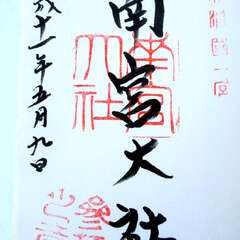 美濃國一宮
南宮大社
成十一年五月九日